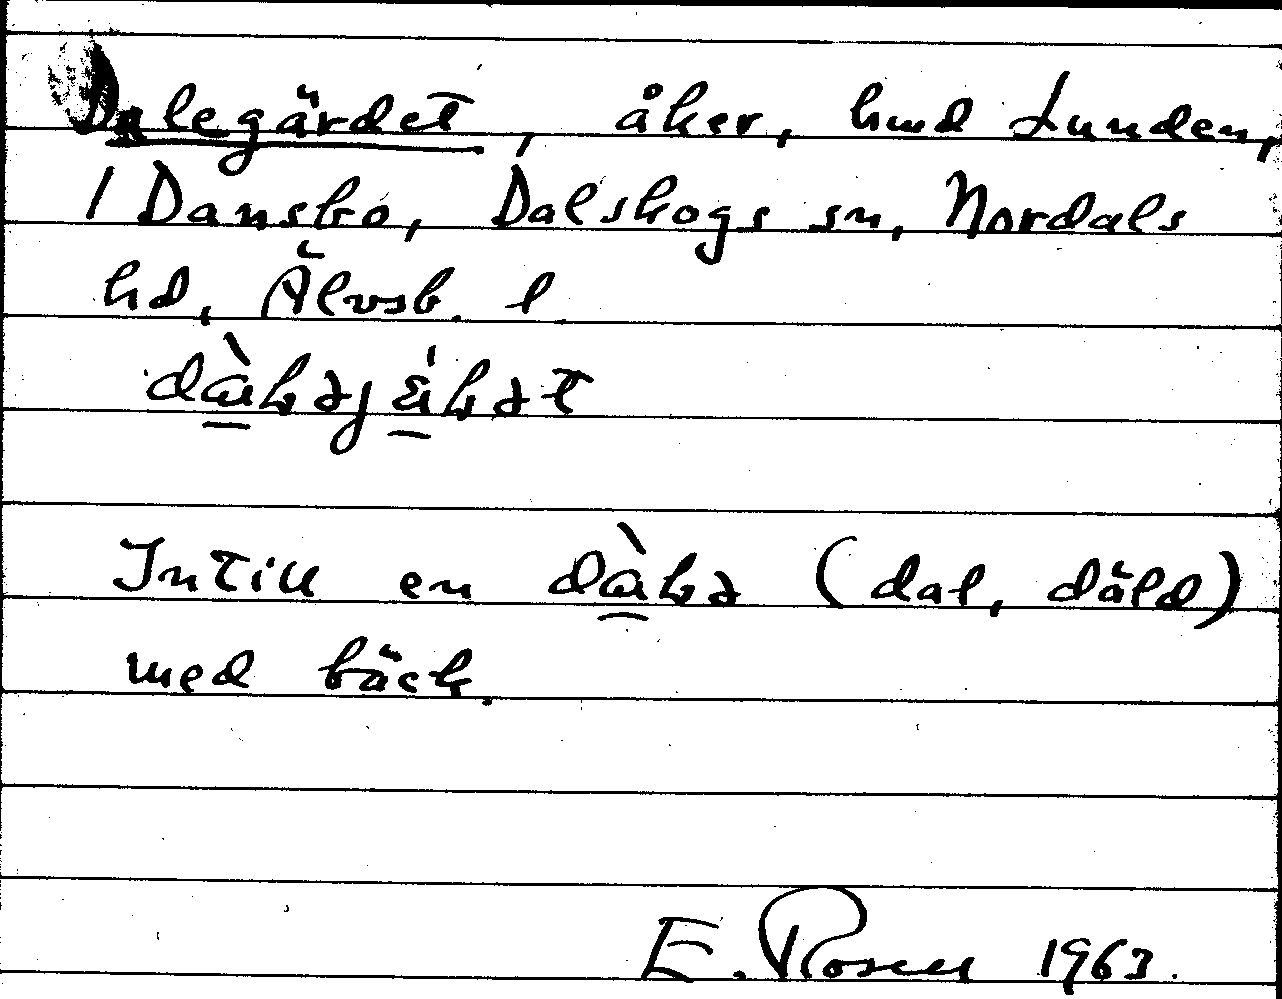 Dalegärdet, åker, hmd Lunden,
1 Dansbo, Dalskogs sn, Nordals
hd, Älvsb. l.
Intill en (dal, däld)
med bäck.
E. Rosell 1963.